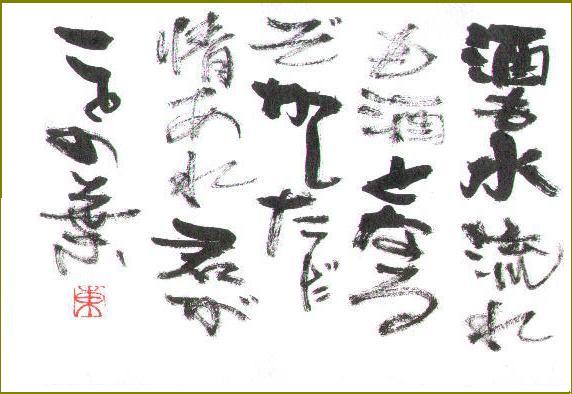 酒も水流れ
も酒となる
ぞかしただ
情あれ君が
ことの葉
東